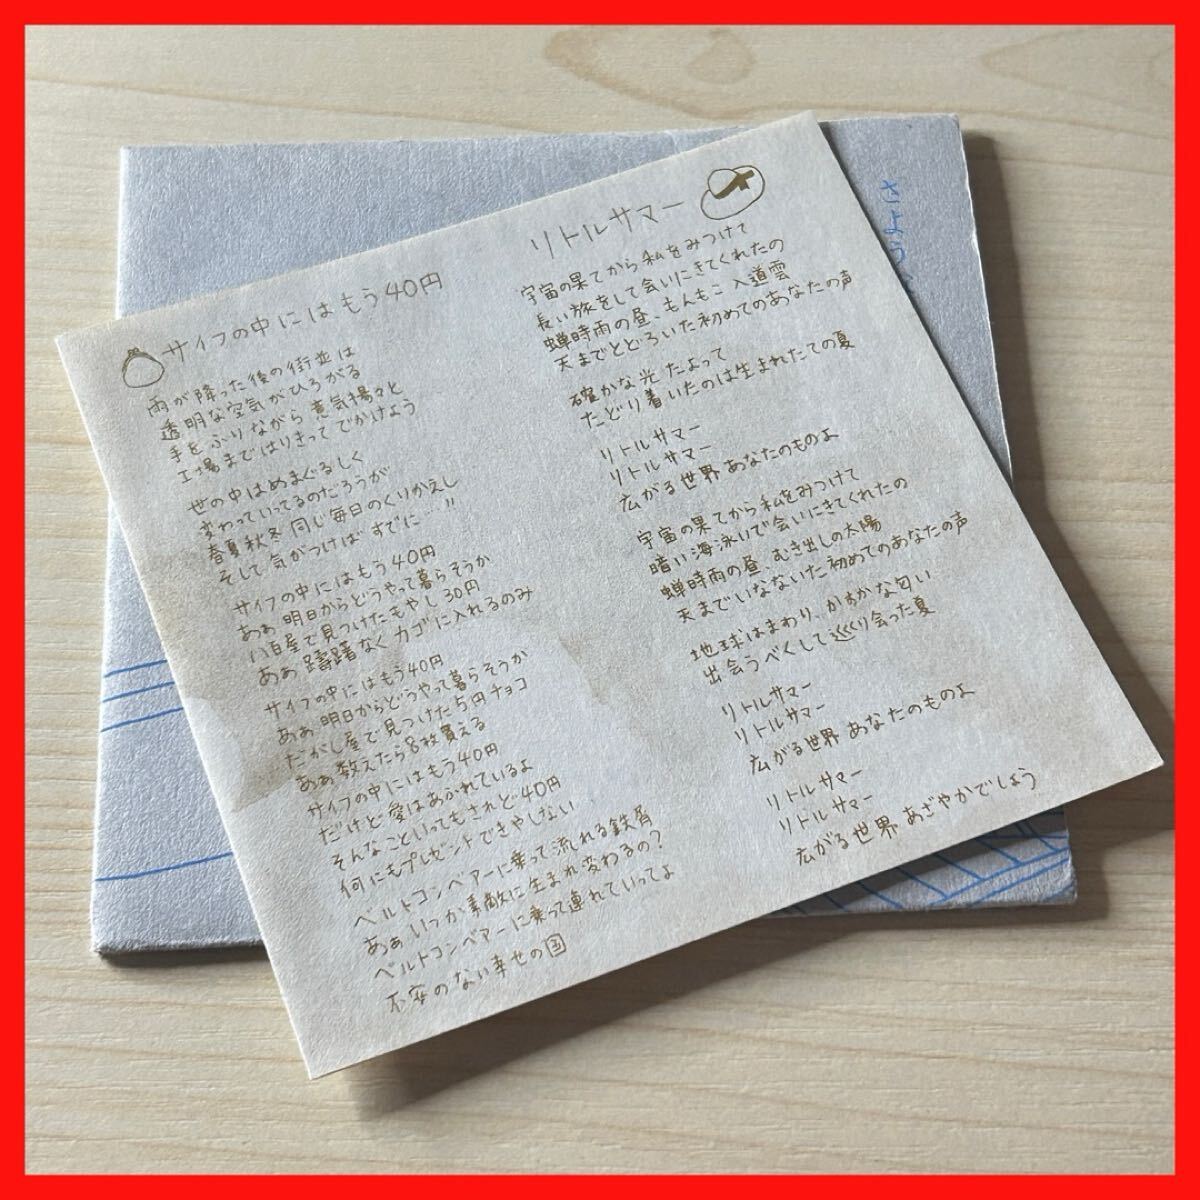 サイフの中にはもう40円
雨が降った後の街並は
透明な空気がひろがる
手をふりながら 意気揚々と
工場まではりきって でかけよう
世の中はめまぐるしく
変わっていってるのだろうが
春夏秋冬 同じ毎日のくりかえし
そして 気がつけば すでに…!!
サイフの中にはもう40円
あぁ 明日からどうやって暮らそうか
八百屋で見つけたもやし30円
あぁ 躊躇なくカゴに入れるのみ
サイフの中にはもう40円
あぁ 明日からどうやって暮らそうか
だがし屋で見つけた5円チョコ
あぁ 数えたら8枚買える
サイフの中にはもう40円
だけど愛はあふれているよ
そんなこといってもされど40円
何にもプレゼントできやしない
ベルトコンベアーに乗って流れる鉄屑
あぁ いつか素敵に生まれ変わるの?
ベルトコンベアーに乗って連れていってよ
不安のない幸せの国
リトルサマー
宇宙の果てから私をみつけて
長い旅をして会いにきてくれたの
蝉時雨の昼、もんもこ入道雲
天までとどろいた初めてのあなたの声
確かな光 たよって
たどり着いたのは生まれたての夏
リトルサマー
リトルサマー
広がる世界 あなたのものよ
宇宙の果てから私をみつけて
暗い海泳いで会いにきてくれたの
蝉時雨の昼、むき出しの太陽
天までいなないた初めてのあなたの声
地球はまわり、かすかな匂い
出会うべくして巡り会った夏
リトルサマー
リトルサマー
広がる世界 あなたのものよ
リトルサマー
リトルサマー
広がる世界 あざやかでしょう